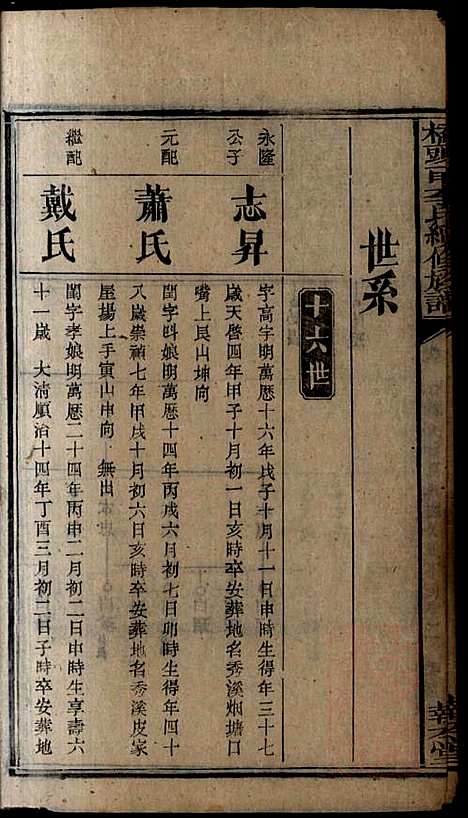 世系
十六世
永隆公子
志昇
字高字明萬歷十六年戊子十月十一日申時生得年三十七
歲天啓四年甲子十月初一日亥時卒安葬地名秀溪烟塘口
嘴上艮山坤向
元配
蕭氏
閏字旪娘明萬歷十四年丙戌六月初七日卯時生得年四十
八歲崇禎七年甲戌十月初六日亥時卒安葬地名秀溪皮家
屋場上手寅山申向 無出
繼配
戴氏
閨字孝娘明萬歷二十四年丙申二月初二日申時生享壽六
十一歲 大淸順治十四年丁酉三月初二日子時卒安葬地